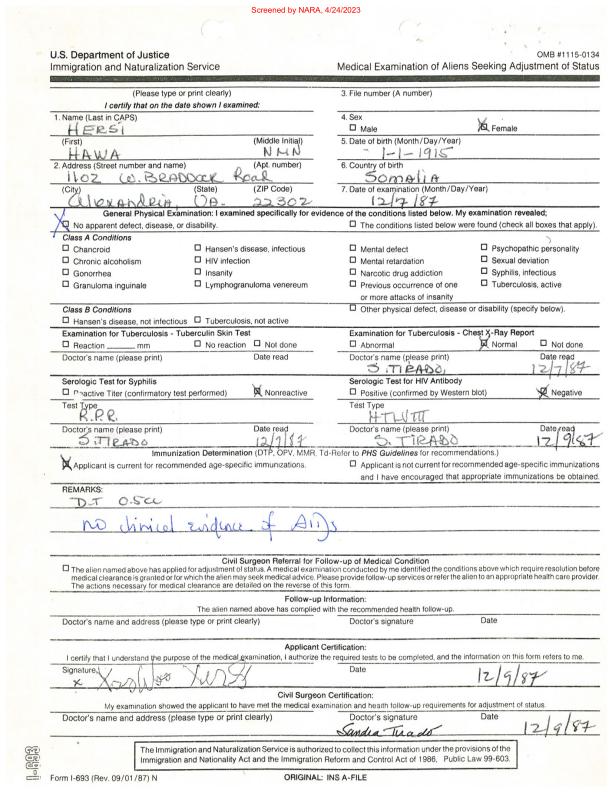 Screened by NARA, 4/24/2023
U.S. Department of Justice
Immigration and Naturalization Service
OMB #1115-0134
Medical Examination of Aliens Seeking Adjustment of Status
(Please type or print clearly)
I certify that on the date shown I examined:
3. File number (A number)
1. Name (Last in CAPS)
HERSI
4. Sex
Male
Female
(First) (Middle Initial)
HAWA NMN
5. Date of birth (Month/Day/Year)
1-1-1915
2. Address (Street number and name) (Apt. number)
1102 W. BRADDOCK Road
6. Country of birth
SOMALIA
(City) (State) (ZIP Code)
Alexandria, VA. 22302
7. Date of examination (Month/Day/Year)
12/7/87
General Physical Examination: I examined specifically for evidence of the conditions listed below. My examination revealed;
No apparent defect, disease, or disability.
The conditions listed below were found (check all boxes that apply).
Class A Conditions
Chancroid Hansen's disease, infectious Mental defect Psychopathic personality
Chronic alcoholism HIV infection Mental retardation Sexual deviation
Gonorrhea Insanity Narcotic drug addiction Syphilis, infectious
Granuloma inguinale Lymphogranuloma venereum Previous occurrence of one Tuberculosis, active
or more attacks of insanity
Class B Conditions
Other physical defect, disease or disability (specify below).
Hansen's disease, not infectious Tuberculosis, not active
Examination for Tuberculosis - Tuberculin Skin Test
Reaction mm No reaction Not done
Doctor's name (please print) Date read
Examination for Tuberculosis - Chest X-Ray Report
Abnormal Normal Not done
Doctor's name (please print) Date read
S. TIRADO, 12/7/87
Serologic Test for Syphilis
Reactive Titer (confirmatory test performed) Nonreactive
Test Type
R.P.R.
Doctor's name (please print) Date read
S. TIRADO 12/9/87
Serologic Test for HIV Antibody
Positive (confirmed by Western blot) Negative
Test Type
HTLVIII
Doctor's name (please print) Date read
S. TIRADO 12/9/87
Immunization Determination (DTP, OPV, MMR, Td-Refer to PHS Guidelines for recommendations.)
Applicant is current for recommended age-specific immunizations.
Applicant is not current for recommended age-specific immunizations
and I have encouraged that appropriate immunizations be obtained.
REMARKS:
D.T 0.5cc
no clinical evidence of AIDS
Civil Surgeon Referral for Follow-up of Medical Condition
The alien named above has applied for adjustment of status. A medical examination conducted by me identified the conditions above which require resolution before
medical clearance is granted or for which the alien may seek medical advice. Please provide follow-up services or refer the alien to an appropriate health care provider.
The actions necessary for medical clearance are detailed on the reverse of this form.
Follow-up Information:
The alien named above has complied with the recommended health follow-up.
Doctor's name and address (please type or print clearly) Doctor's signature Date
Applicant Certification:
I certify that I understand the purpose of the medical examination, I authorize the required tests to be completed, and the information on this form refers to me.
Signature Date
x 12/9/87
Civil Surgeon Certification:
My examination showed the applicant to have met the medical examination and health follow-up requirements for adjustment of status.
Doctor's name and address (please type or print clearly) Doctor's signature Date
Sandra Tirado 12/9/87
The Immigration and Naturalization Service is authorized to collect this information under the provisions of the
Immigration and Nationality Act and the Immigration Reform and Control Act of 1986, Public Law 99-603.
I-693
Form I-693 (Rev. 09/01/87) N
ORIGINAL: INS A-FILE